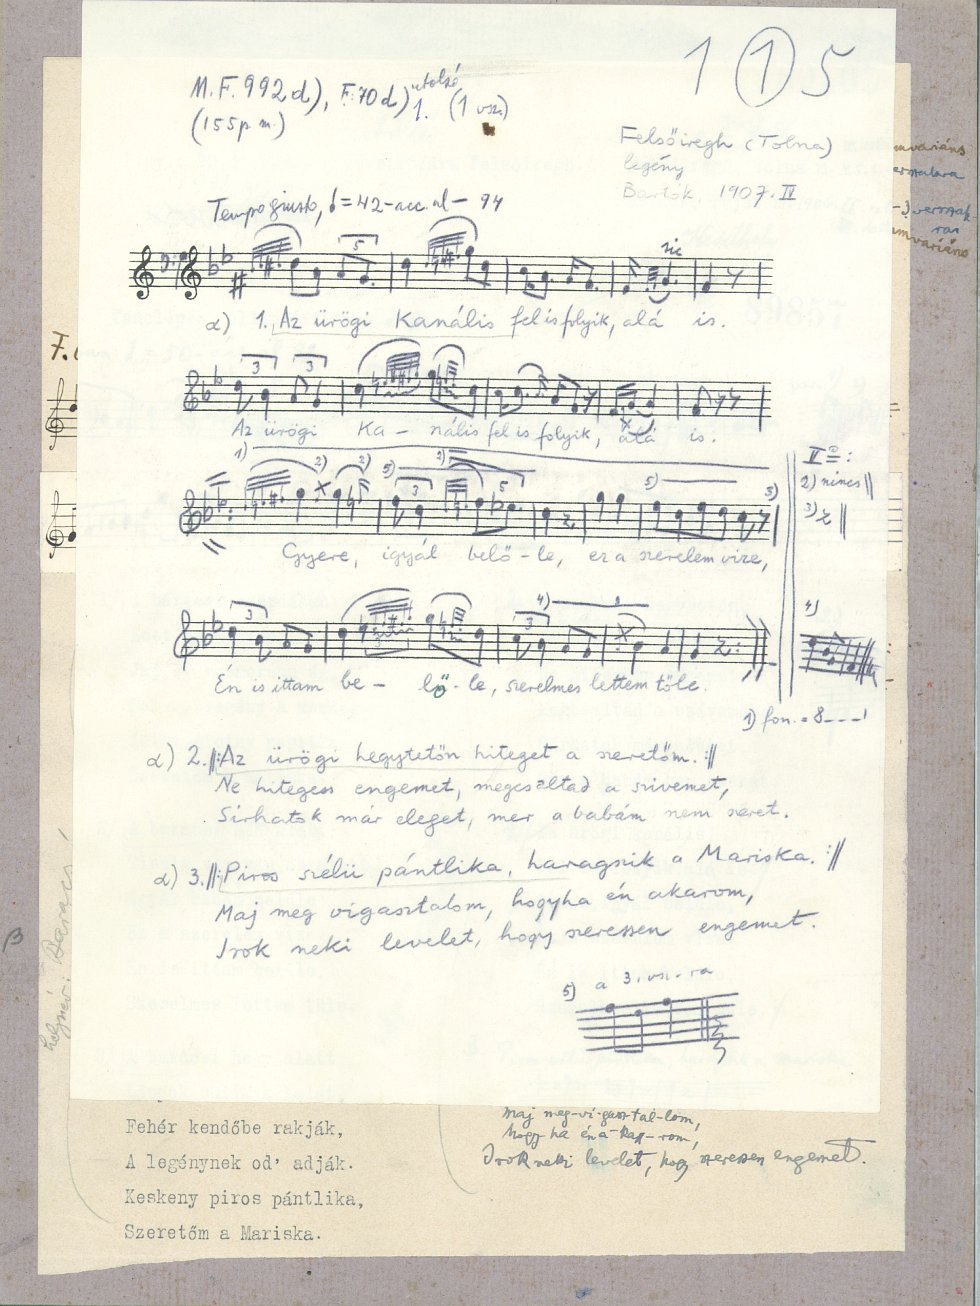 115
M.F. 992d), F. 70d) utolsó
1. (1 vsz)
(155 p m.)
Felsőiregh (Tolna)
legény
Bartók, 1907. IV
Tempo giusto, = 42 - acc. al - 94
sic
α) 1. Az ürögi Kanális fel is folyik, alá is.
Az ürögi Ka - nális fel is folyik, alá is.
1) 2) 2) 5) 2) 5) 3)
Gyere, igyál belő - le, ez a szerelem vize,
2) nincs
3)
4)
4)
Én is ittam be - lő - le, szerelmes lettem tőle.
1) fon. = 8
α) 2. Az ürögi hegytetőn hiteget a szeretőm.
Ne hitegess engemet, megcsaltad a szivemet,
Sírhatok már eleget, mer a babám nem szeret.
α) 3. Piros szélü pántlika, haragszik a Mariska.
Maj meg vigasztalom, hogyha én akarom,
Irok neki levelet, hogy szeressen engemet.
5) a 3. vsz-ra
β
Maj meg-vi-gasz-tal-lom,
hogy ha én a-kar-rom,
Irok neki levelet, hogy szeressen engemet.
Fehér kendőbe rakják,
A legénynek od' adják.
Keskeny piros pántlika,
Szeretőm a Mariska.